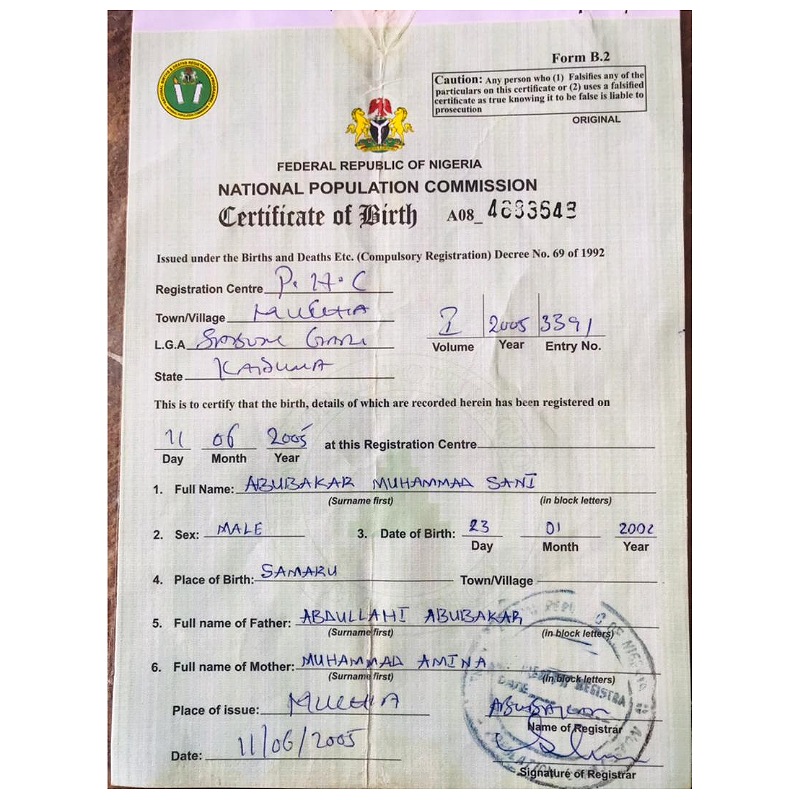 Form B.2
Caution: Any person who (1) Falsifies any of the
particulars on this certificate or (2) uses a falsified
certificate as true knowing it to be false is liable to
prosecution
ORIGINAL
FEDERAL REPUBLIC OF NIGERIA
NATIONAL POPULATION COMMISSION
Certificate of Birth A08_ 4683643
Issued under the Births and Deaths Etc. (Compulsory Registration) Decree No. 69 of 1992
Registration Centre P.H.C
Town/Village MUCHIA
L.G.A Sabon Gari
I 2005 3391
Volume Year Entry No.
State KADUNA
This is to certify that the birth, details of which are recorded herein has been registered on
11 06 2005 at this Registration Centre
Day Month Year
1. Full Name: ABUBAKAR MUHAMMAD SANI
(Surname first) (in block letters)
2. Sex: MALE 3. Date of Birth: 23 01 2002
Day Month Year
4. Place of Birth: SAMARU Town/Village
5. Full name of Father: ABDULLAHI ABUBAKAR
(Surname first) (in block letters)
6. Full name of Mother: MUHAMMAD AMINA
(Surname first) (in block letters)
Place of issue: MUCHIA
Name of Registrar
Date: 11/06/2005
Signature of Registrar